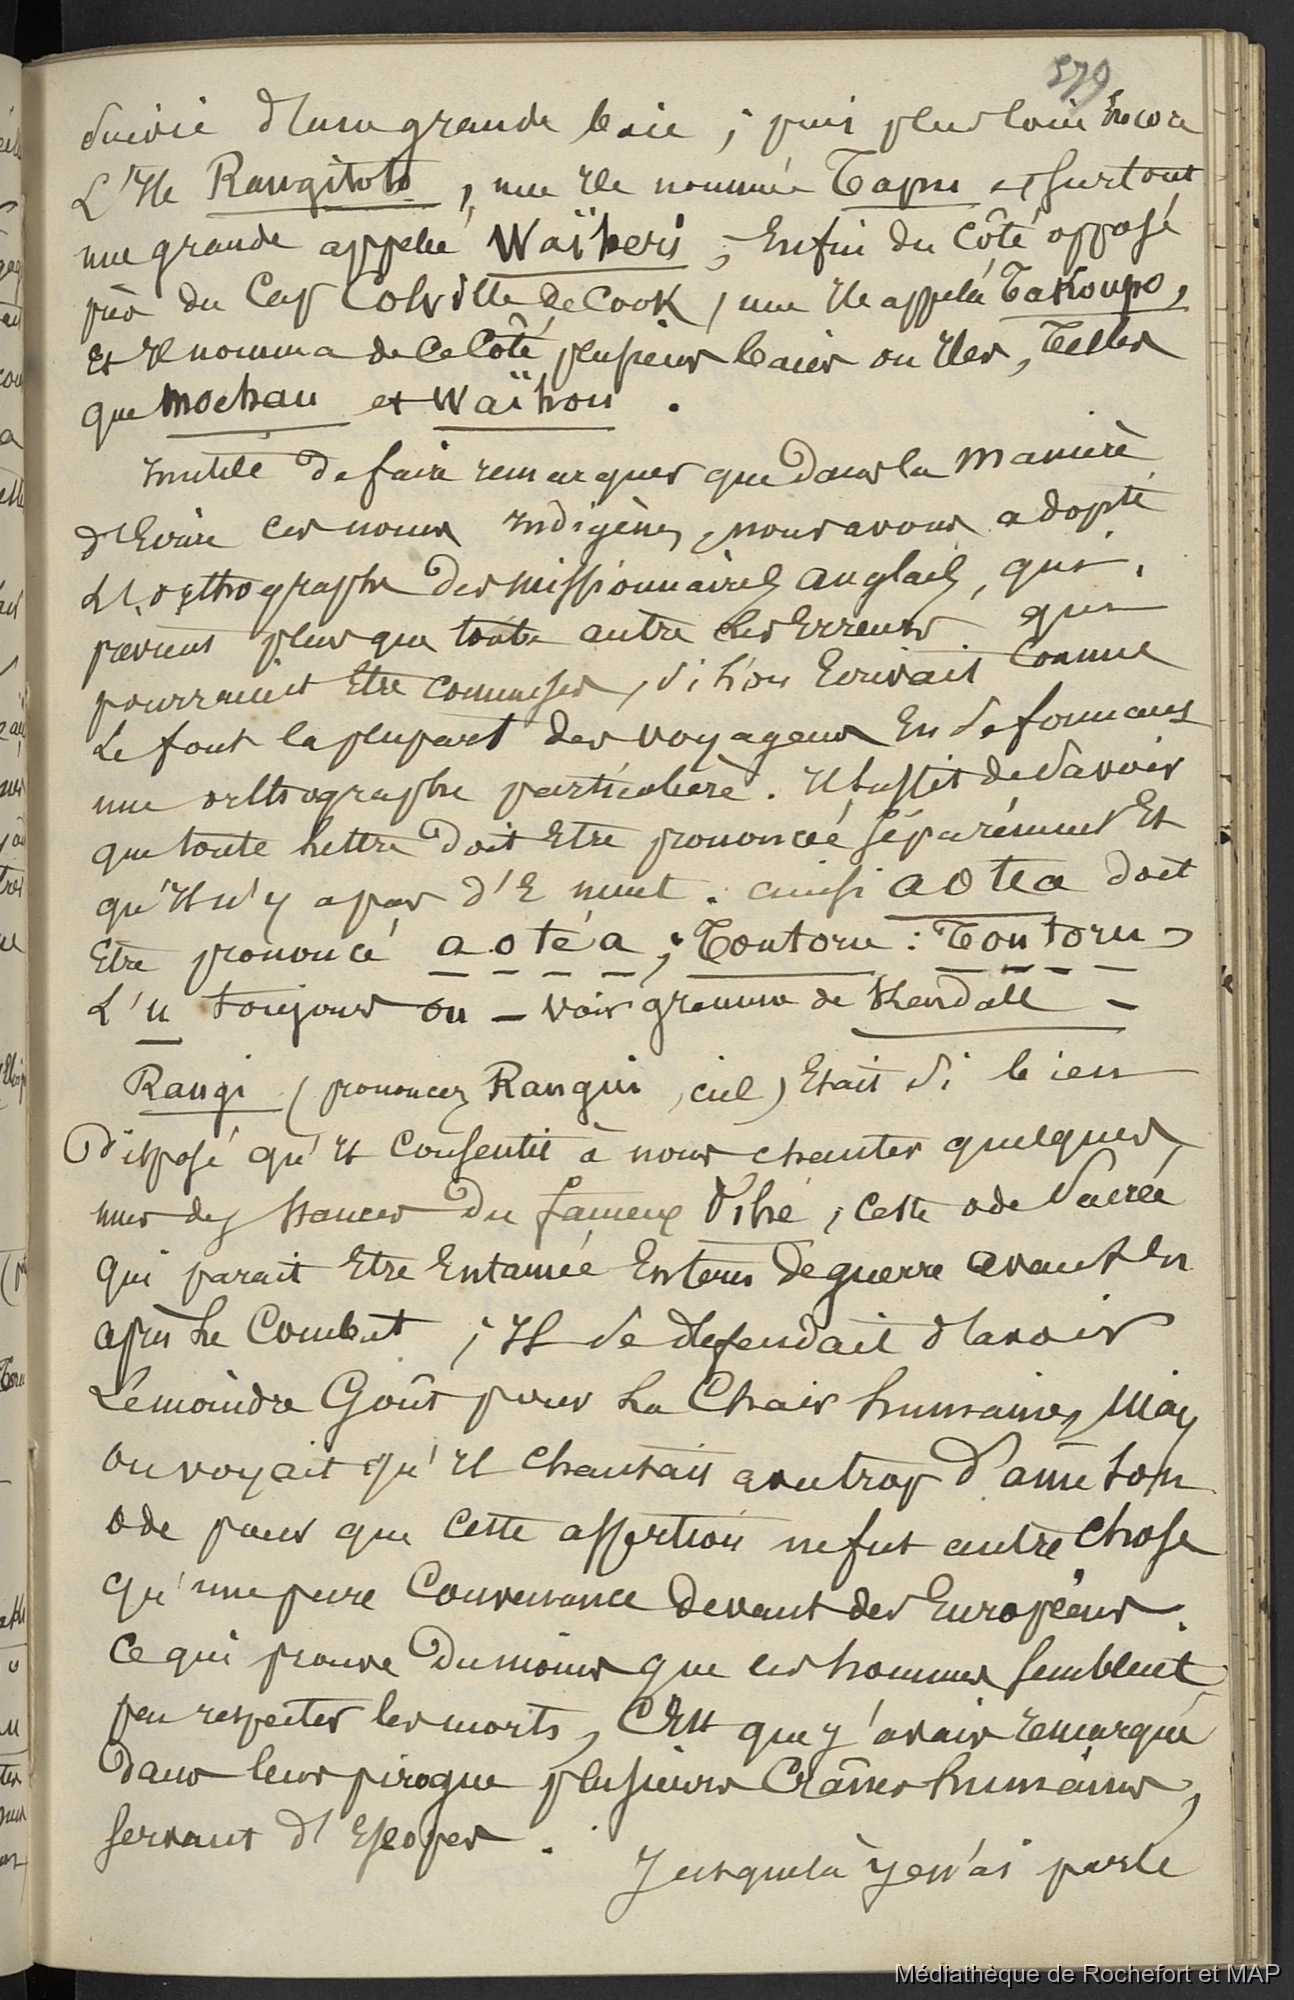 579
suivie d'une grande baie ; puis plus loin Encore
L'Ile Rangitoto , une Ile nommée Tapu et surtout
une grande appelée Waïheri ; Enfin du Côté opposé
près du Cap Colville de Cook , une Ile appelée Takoupo,
Et Il nomma de Ce Côté plusieurs baies ou Iles, Telles
que Moehau et Waïhou .
Inutile de faire remarquer que dans la Manière
d'Ecrire ces noms Indigènes, nous avons adopté
L'orthographe des Missionnaires anglais, qui
prévient plus que toute autre les Erreurs que
pourraient Etre commises, si l'on Ecrivait Comme
Le font la plupart des voyageurs En se formant
une orthographe particulière . Il suffit de Savoir
que toute Lettre doit Etre prononcée séparément Et
qu'Il n'y a pas d'E muet . ainsi aotea doit
Etre prononcé a o té a ; Toutoru : Toutoru
L'u toujours ou – voir grammre de Kendall –
Rangi ( prononcez Rangui , ciel ) Etait Si bien
Disposé qu'Il Consentit à nous chanter quelques
unes des Stances Du fameux Pihé , cette ode Sacrée
qui parait Etre Entamée En tems de guerre avant Et
après Le Combat ; Il Se défendait d'avoir
Le moindre Goût pour La Chair humaine, Mais
on voyait qu'Il Chantait avec trop d'âme Son
ode pour que Cette assertion ne fut autre Chose
qu'une pure Convenance Devant des Européens .
Ce qui prouve Du moins que ces hommes semblent
peu respecter les morts, C'Est que j'avais remarqué
Dans leur pirogue plusieurs Crânes humains,
servant d'Escopes .
Jusques là Je n'ai parlé
Médiathèque de Rochefort et MAP